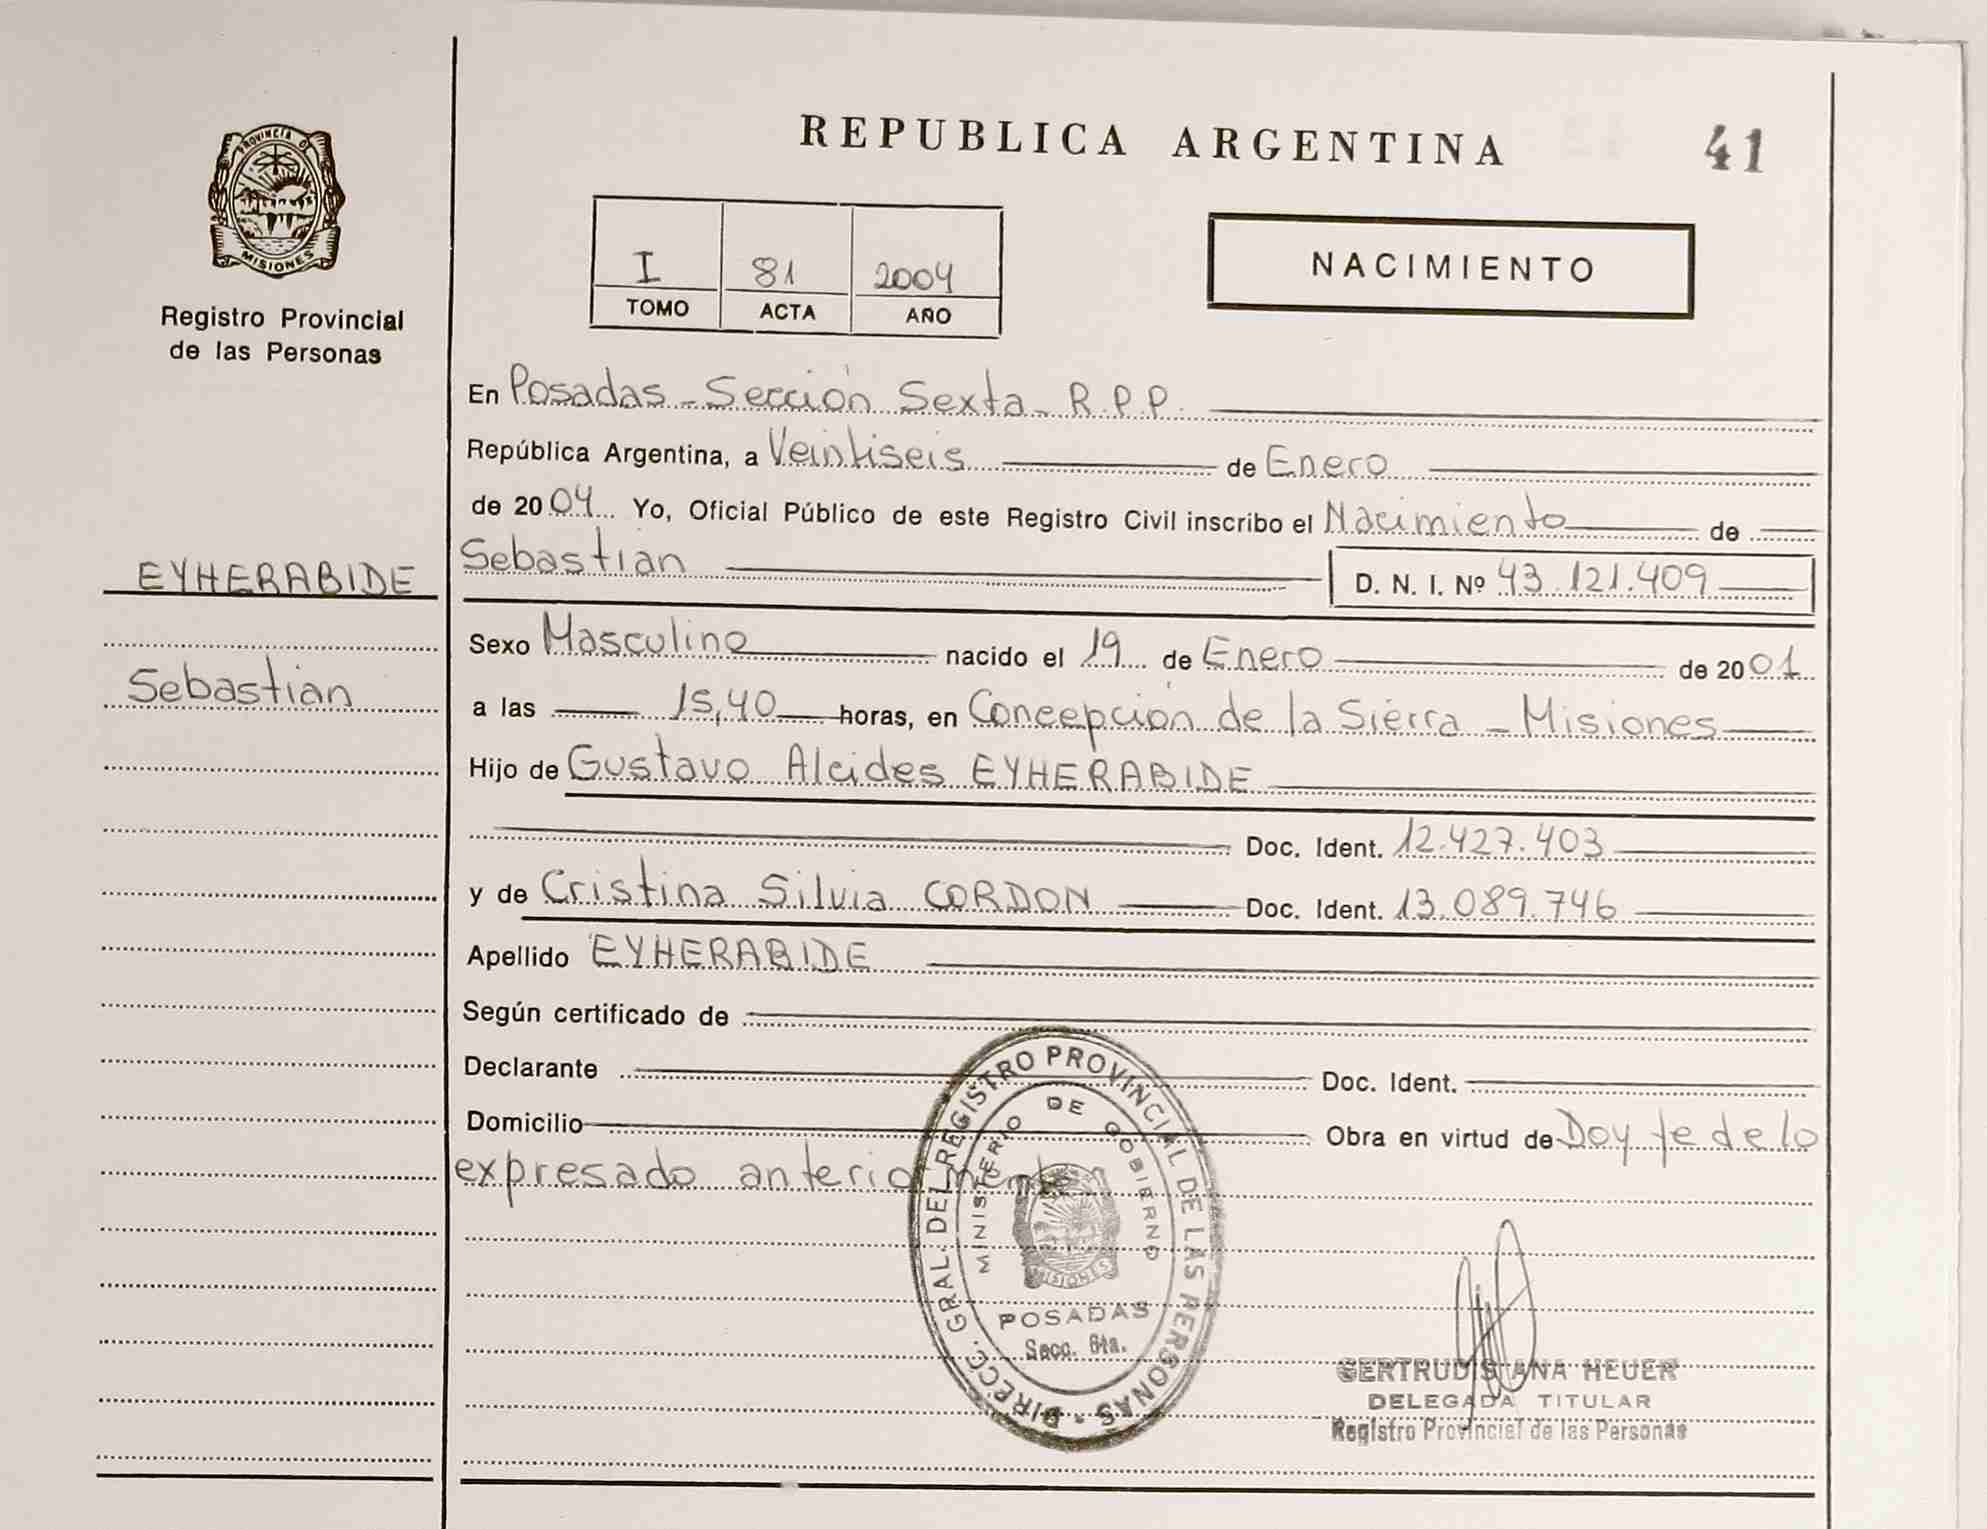 PROVINCIA DE
MISIONES
Registro Provincial
de las Personas
REPUBLICA ARGENTINA
41
I
81
2004
TOMO
ACTA
AÑO
NACIMIENTO
En Posadas - Sección Sexta - R.P.P.
República Argentina, a Veintiseis de Enero
de 2004 Yo, Oficial Público de este Registro Civil inscribo el Nacimiento de
EYHERABIDE
Sebastián D. N. I. Nº 43.121.409
Sexo Masculino nacido el 19 de Enero de 2001
Sebastián
a las 15,40 horas, en Concepción de la Sierra - Misiones
Hijo de Gustavo Alcides EYHERABIDE
Doc. Ident. 12.427.403
y de Cristina Silvia CORDON Doc. Ident. 13.089.746
Apellido EYHERABIDE
Según certificado de
Declarante Doc. Ident.
Domicilio Obra en virtud de Doy fe de lo
expresado anteriormente
DIRECC. GRAL. DEL REGISTRO PROVINCIAL DE LAS PERSONAS -
MINISTERIO DE GOBIERNO
MISIONES
POSADAS
Secc. 6ta.
GERTRUDIS ANA HEUER
DELEGADA TITULAR
Registro Provincial de las Personas